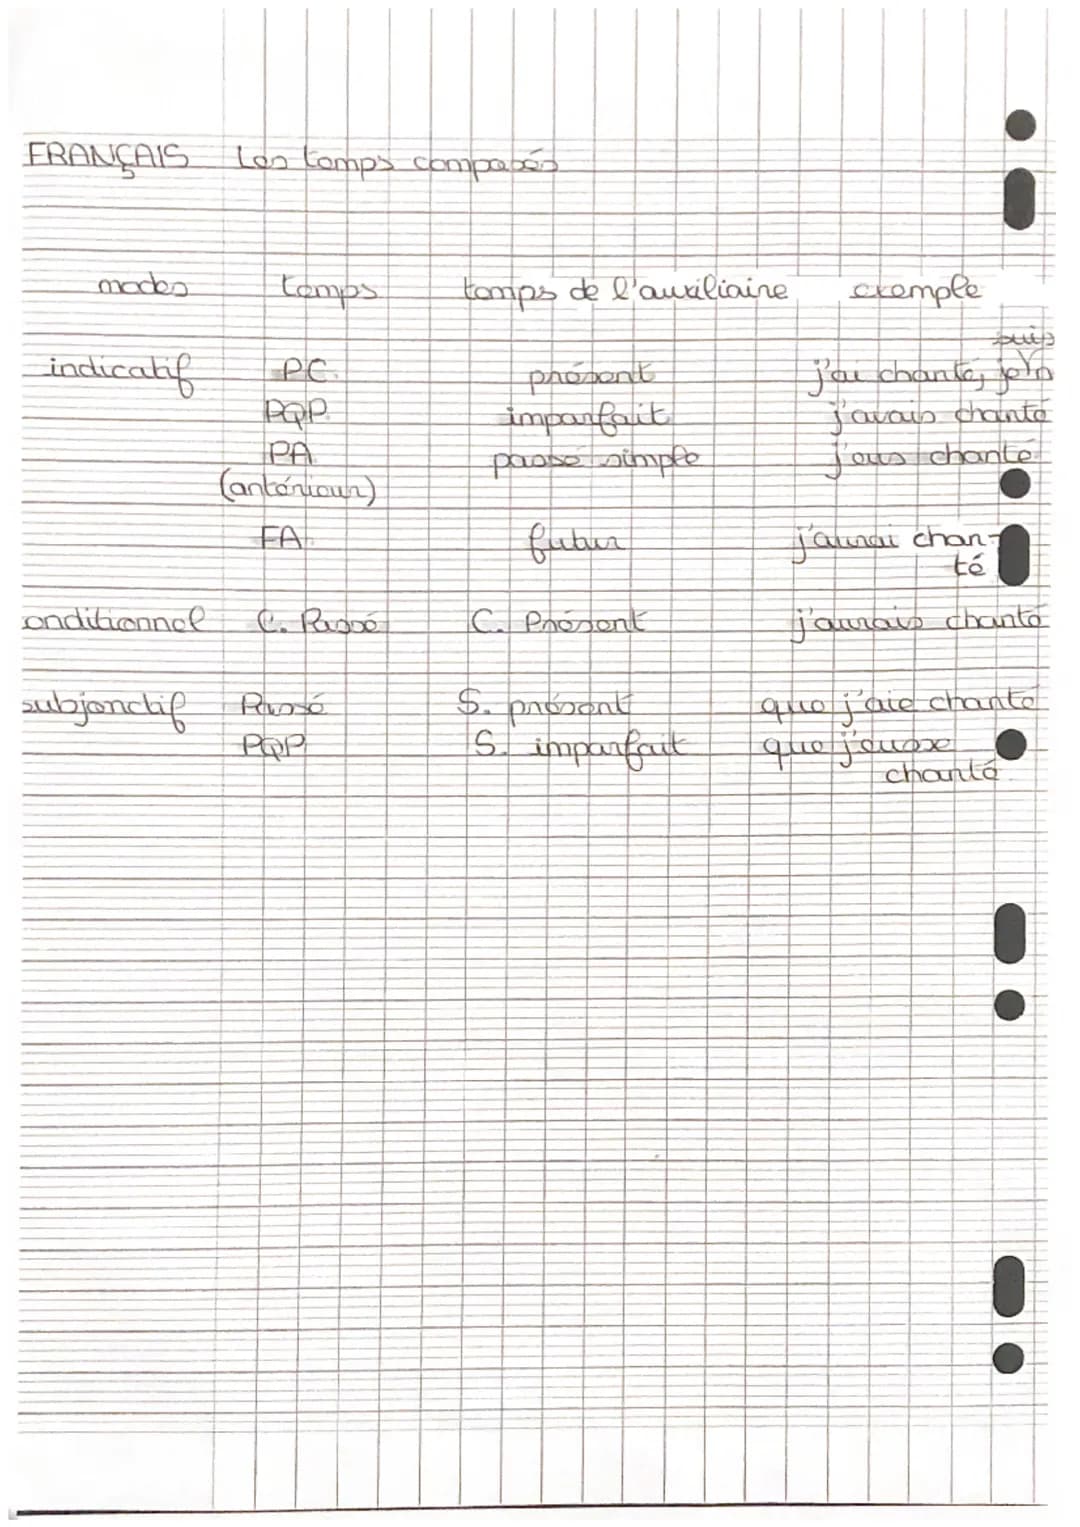 FRANÇAIS Les temps composés
modes temps temps de l'auxiliaire exemple
suis
indicatif P.C. présent j'ai chanté, je
PQP. imparfait j'avais chanté
PA. passé simple j'eus chanté
(antérieur)
FA. futur j'aurai chan-
té
onditionnel C. Passé C. Présent j'aurais chanté
subjonctif Passé S. présent que j'aie chanté
PQP S. imparfait que j'eusse
chanté